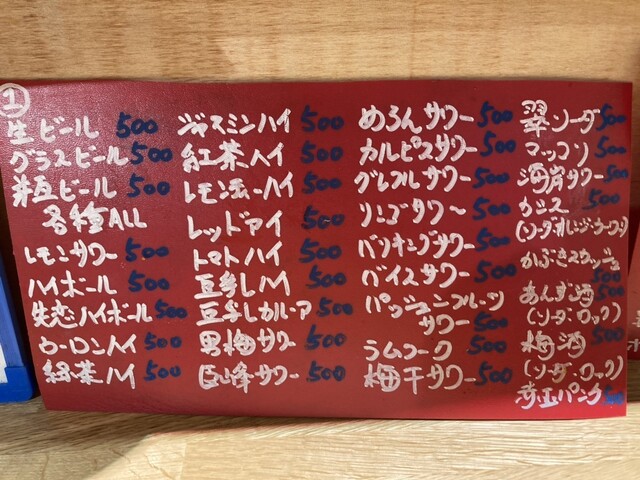 ①
生ビール 500
グラスビール 500
赤豆ビール 500
各種ALL
レモンサワー 500
ハイボール 500
失恋ハイボール 500
ウーロンハイ 500
緑茶ハイ 500
ジャスミンハイ 500
紅茶ハイ 500
レモンティーハイ 500
レッドアイ 500
トマトハイ 500
豆乳ハイ 500
豆乳カルーア 500
男梅サワー 500
巨峰サワー 500
めろんサワー 500
カルピスサワー 500
グレフルサワー 500
リンゴサワー 500
バイキングサワー 500
バイスサワー 500
パッションフルーツ
サワー 500
ラムコーク 500
梅干サワー 500
翠ソーダ 500
マッコリ 500
海岸サワー 500
カシス 500
(ソーダ・オレンジ・ウーロン)
かぶきスカッシュ
500
あんず酒 500
(ソーダ・ロック)
梅酒 500
(ソーダ・ロック)
赤玉パンチ 500